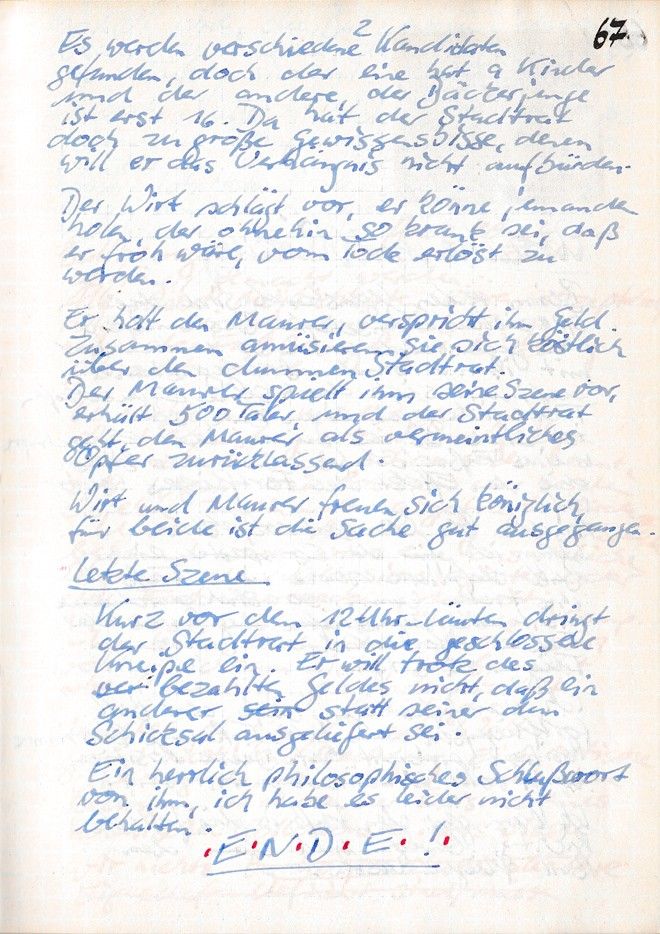 67.
Es werden verschiedene 2 Kandidaten
gefunden, doch der eine hat 9 Kinder
und der andere, der Bäckerjunge
ist erst 16. Da hat der Stadtrat
doch zu große Gewissensbisse, denen
will er das Verhängnis nicht aufbürden.
Der Wirt schlägt vor, er könne jemanden
holen, der ohnehin so krank sei, daß
er froh wäre, vom Tode erlöst zu
werden.
Er holt den Maurer, verspricht ihm Geld.
Zusammen amüsieren sie sich köstlich
über den dummen Stadtrat.
Der Maurer spielt ihm seine Szene vor,
erhält 500 Taler, und der Stadtrat
geht, den Maurer als vermeintliches
Opfer zurücklassend.
Wirt und Maurer freuen sich königlich,
für beide ist die Sache gut ausgegangen.
Letzte Szene
Kurz vor dem 12 Uhr-Läuten dringt
der Stadtrat in die geschlossene
Kneipe ein. Er will trotz des
bezahlten Geldes nicht, daß ein
anderer statt seiner dem
Schicksal ausgeliefert sei.
Ein herrlich philosophisches Schlußwort
von ihm, ich habe es leider nicht
behalten.
.E.N.D.E.!.